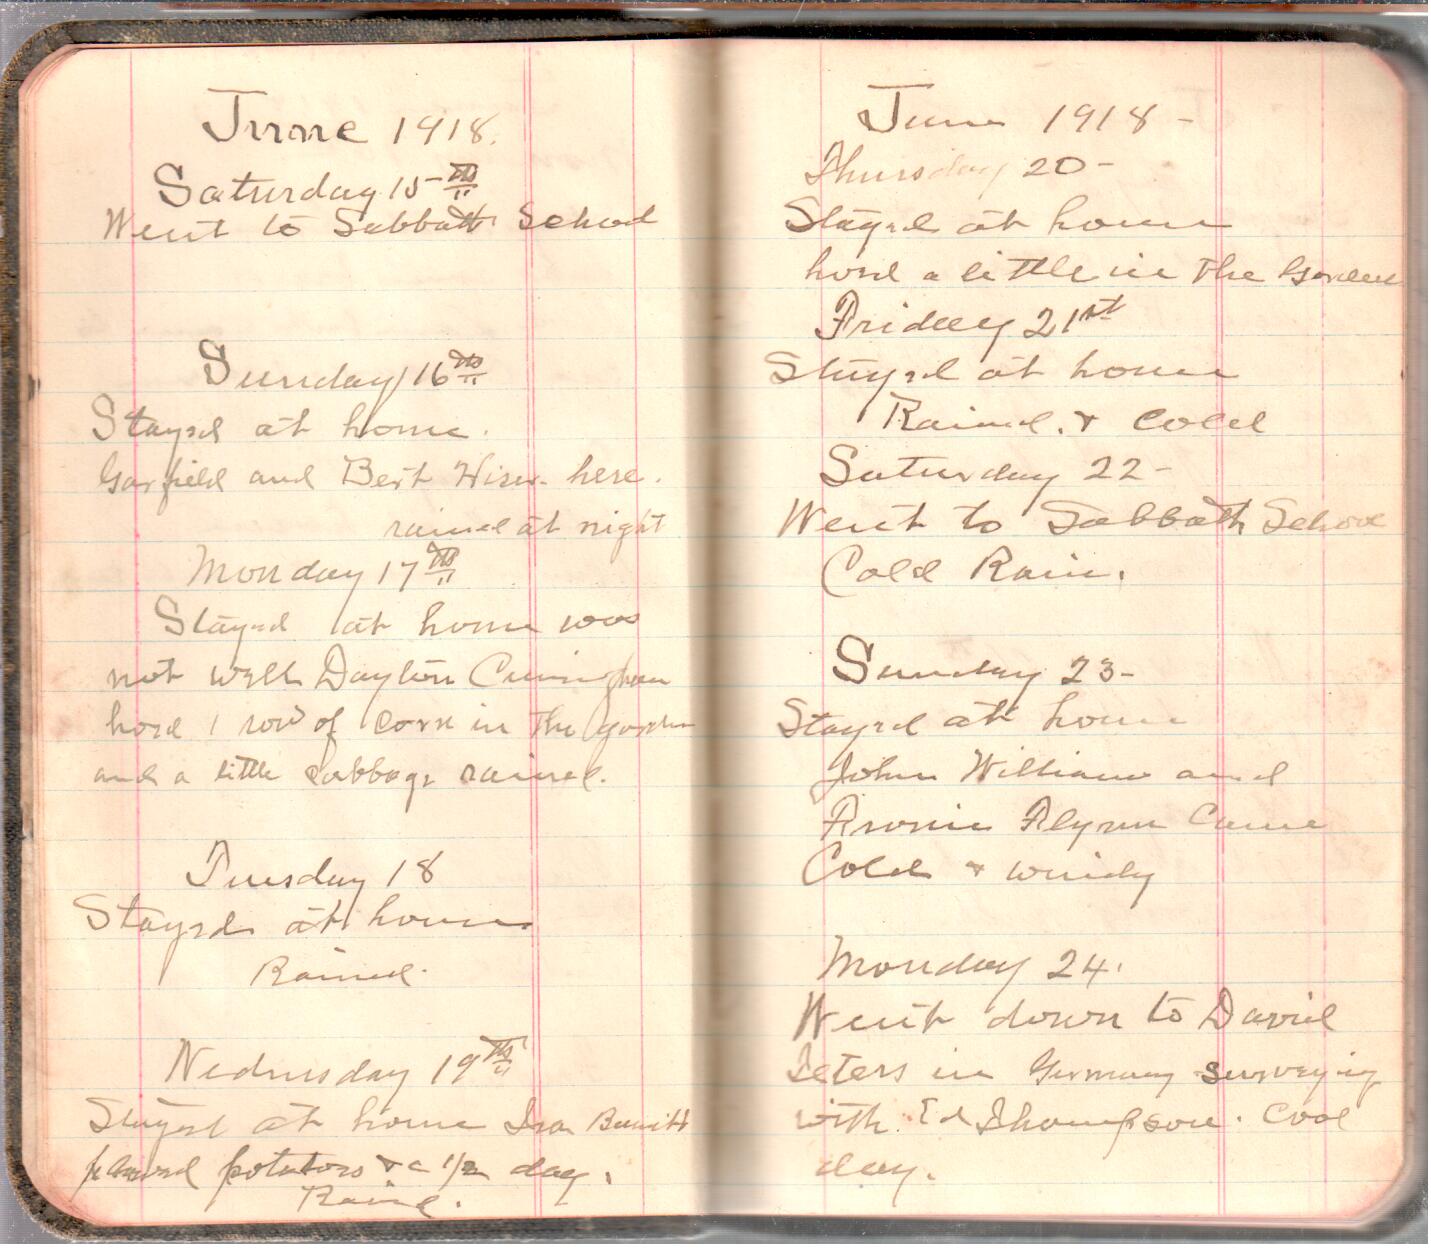 June 1918.
Saturday 15th
Went to Sabbath School
Sunday 16th
Stayed at home.
Garfield and Bert Wiser here.
rained at night
Monday 17th
Stayed at home was
not well Dayton Cuningham
hoed 1 row of corn in the garden
and a little cabbage rained.
Tuesday 18
Stayed at home
Rained.
Wednesday 19th
Stayed at home Ira
potatoes &c 1/2 day.
Raind.
June 1918-
Thursday 20-
Stayed at home
hoed a little in the Garden
Friday 21st
Stayed at home
Rained. & cold
Saturday 22-
Went to Sabbath School
Cold Rain.
Sunday 23-
Stayed at home
John William and
Flynn Came
Cold & windy
Monday 24.
Went down to David
Peters in Germany surveying
with Ed Thompson. Cool
day.